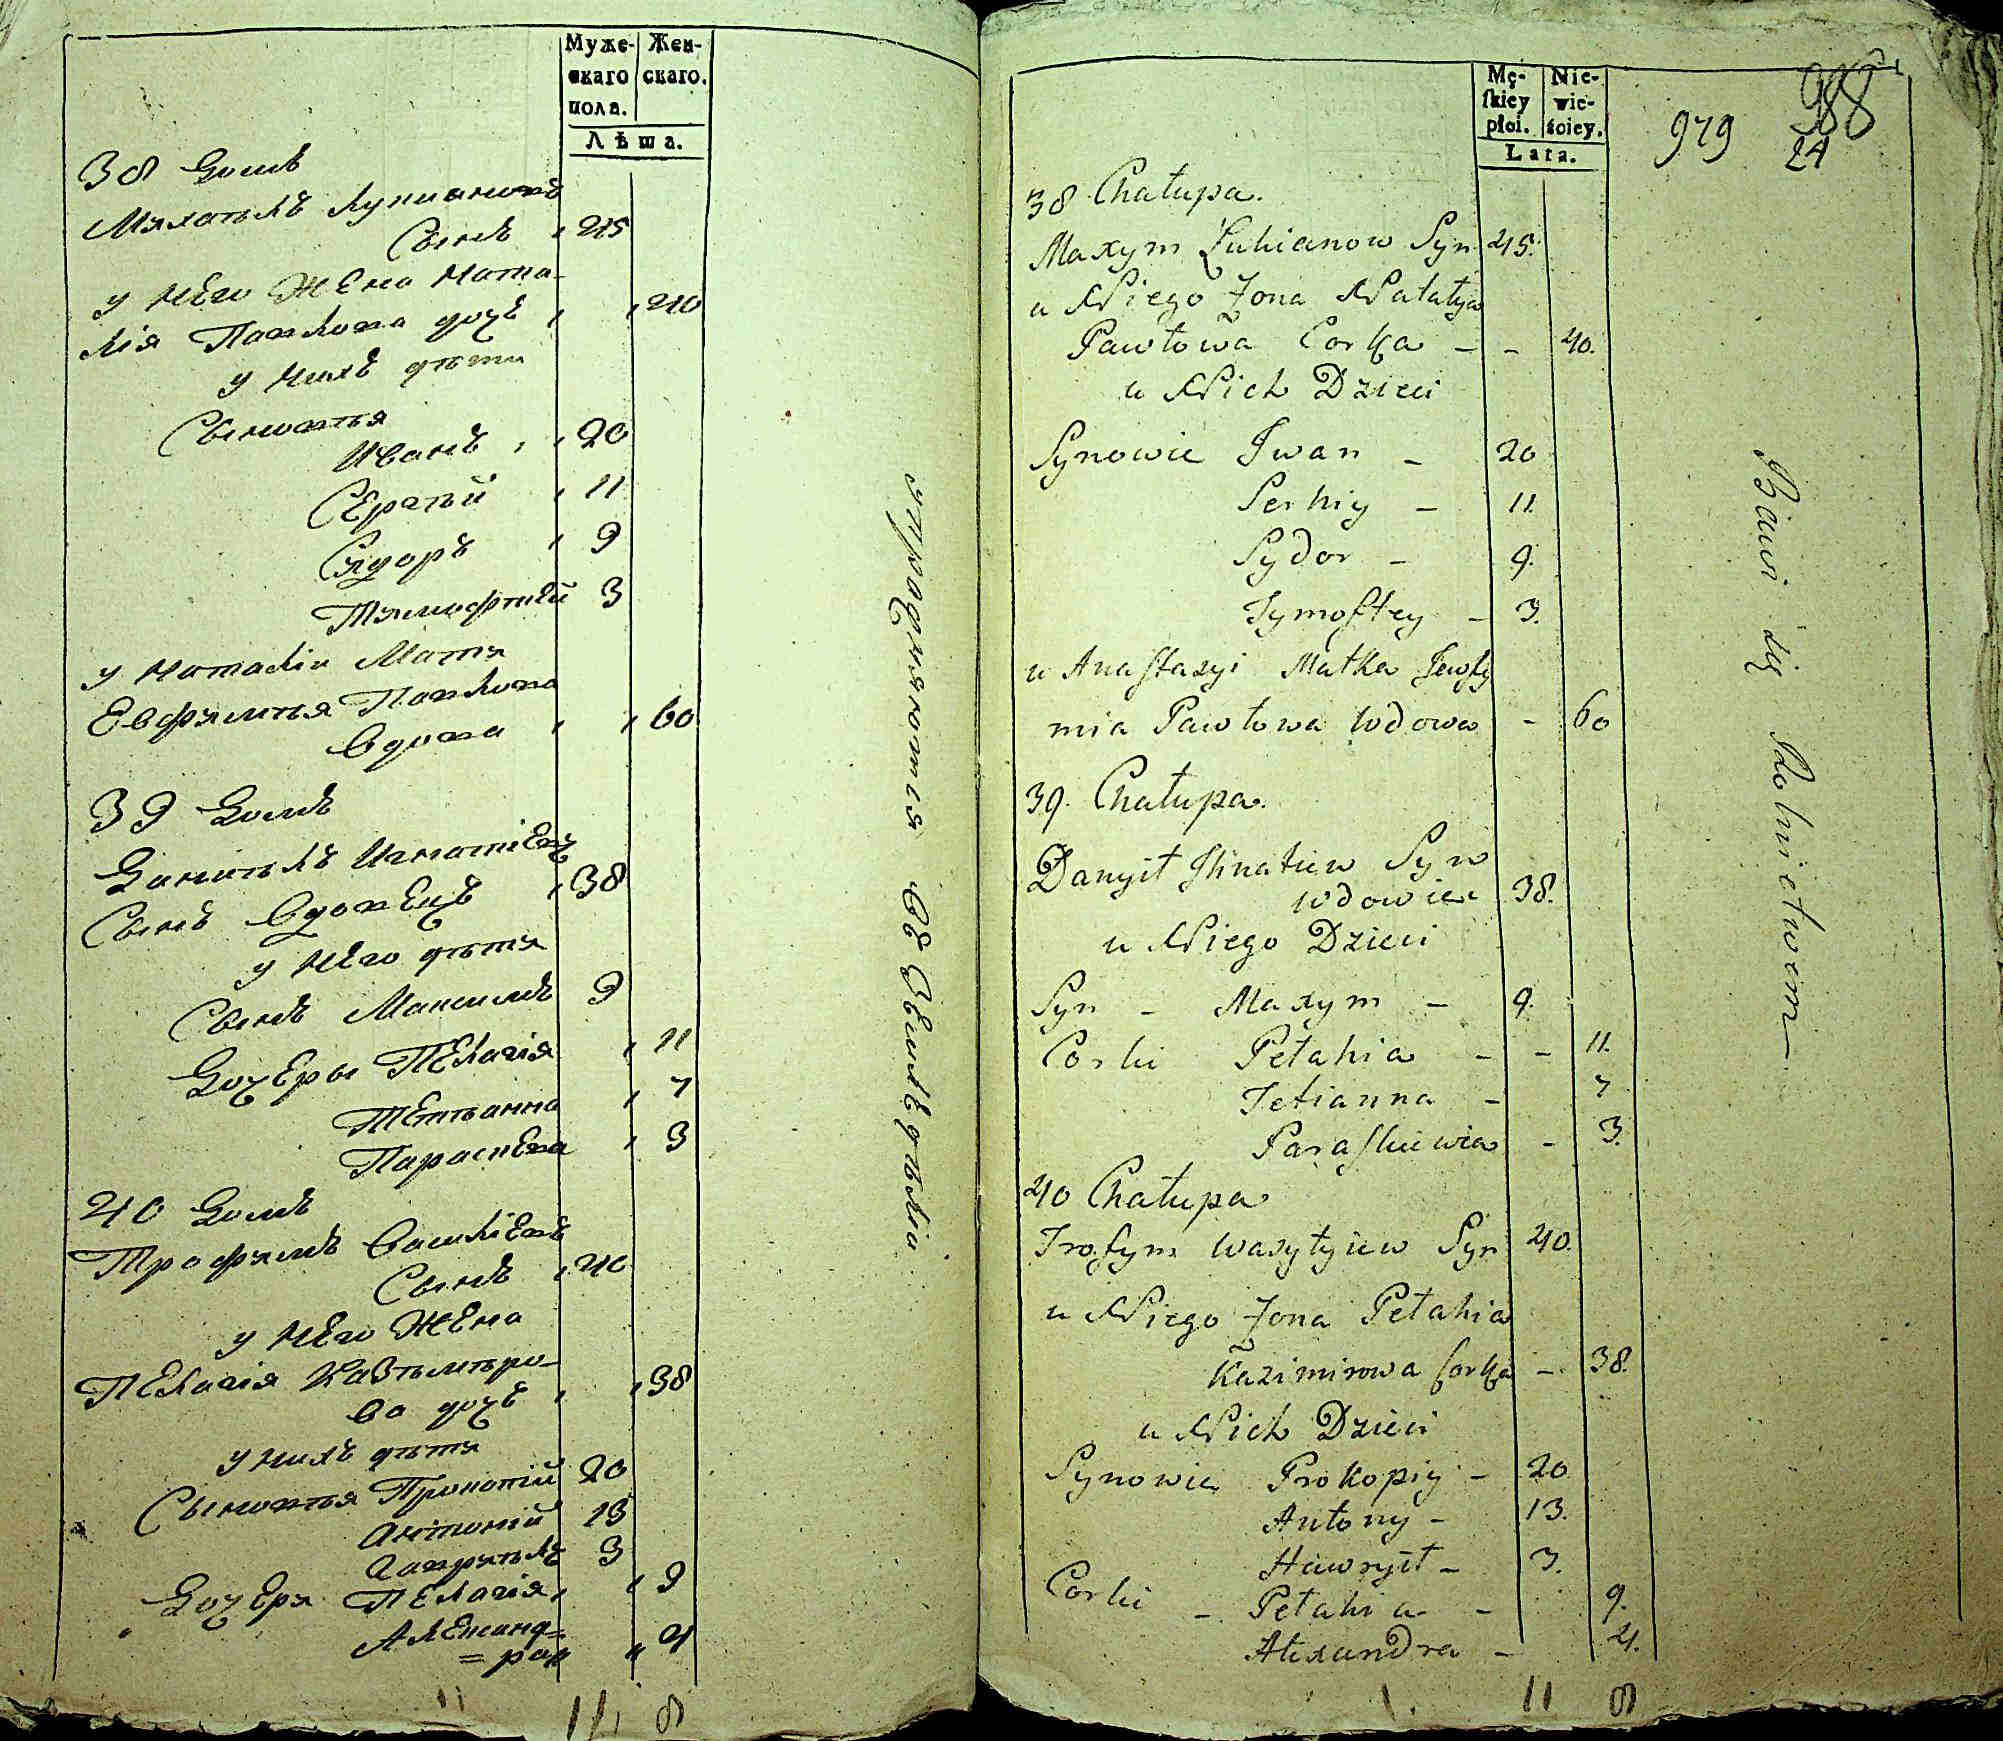 Муже-
скаго
пола.
Жен-
скаго.
Лѣта.
38 Домъ
Мяхаилъ Лукиановъ
Сынъ 45
У Него Жена Ната-
лія Павлова дочь 40
у Нихъ дѣти
Сыновья
Иванъ 20
Сергѣй 11
Сядоръ 9
Тямофтей 3
У Наталіи Мати
Евфямія Павлова
Вдова 60
39 Домъ
Данилъ Игнатіевъ
Сынъ Вдовецъ 38
у Него дѣти
Сынъ Максимъ 9
Дочеры Пелагія 11
Тетьанна 7
Параскева 3
40 Домъ
Трофямъ Василіевъ
Сынъ 40
у Него Жена
Пелагія Казьмиро-
ва дочь 38
у нихъ дѣти
Сыновья Прокопій 20
Антоній 13
Гаврилъ 3
Дочеря Пелагія 9
Александ=
=ра 4
11 8
упражняются въ Земледѣліи
Mę-
ſkiey
płci.
Nie-
wie-
ściey.
Lata.
979
988
24
38 Chałupa.
Maxym Łukianow Syn 45.
u Niego Żona Natalya
Pawłowa Corka - - 40.
u Nich Dzieci
Synowie Iwan - 20
Serhiy - 11.
Sydor - 9.
Tymoftey - 3.
u Anastazyi Matka Jewfy
mia Pawłowa wdowa - 60
39. Chałupa.
Danyił Ihnatiew Syn
wdowiec 38.
u Niego Dzieci
Syn - Maxym - 9.
Corki Pełahia - - 11.
Tetianna - 7
Paraskiewia - 3.
40 Chałupa
Trofym Wasylyiew Syn 40.
u Niego Żona Pełahia
Kazimirowa Corka - 38.
u Nich Dzieci
Synowie Prokopiy - 20
Antony - 13.
Hawryił - 3.
Corki - Pełahia - 9.
Alexandra - 4.
11 8
Bawi się Rolnictwem